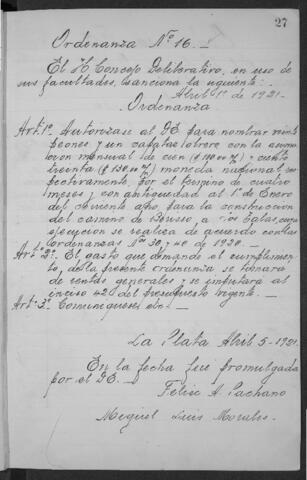 27
Ordenanza Nº 16. —
El H Concejo Deliberativo, en uso de
sus facultades, sanciona la siguiente:
Abril 1º de 1921.
Ordenanza
Art. 1º. Autorizase al D.E. para nombrar veinte
peones y un capataz obrero con la asignacion
mensual de cien ($ 100.00 %) y ciento
treinta ($ 130.00 %) moneda nacional, respectivamente,
por el termino de cuatro
meses, con antigüedad al 1º de Enero
del corriente año, para la construccion
del camino de Berisso, a Los Talas, cuya
ejecucion se realiza de acuerdo con las
ordenanzas Nº 30 y 40 de 1920. —
Art. 2º. El gasto que demande el cumplimiento,
de la presente ordenanza, se tomará
de rentas generales y se imputará al
inciso 42 del presupuesto vigente. —
Art. 3º Comuniquese, etc. —
La Plata Abril 5 - 1921.
En la fecha fué promulgada
por el D.E. —
Felix A Pachano
Miguel Luis Morales.